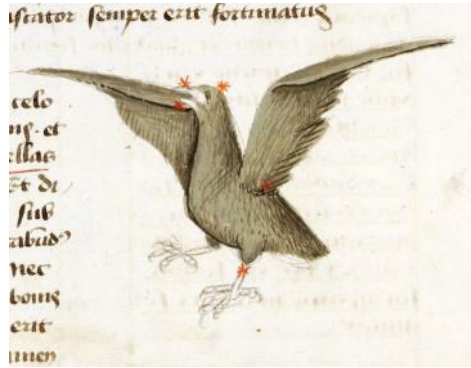 iscator semper erit fortunatus
celo
et
ellas
Et di
sub
nec
bonis
erit
amen